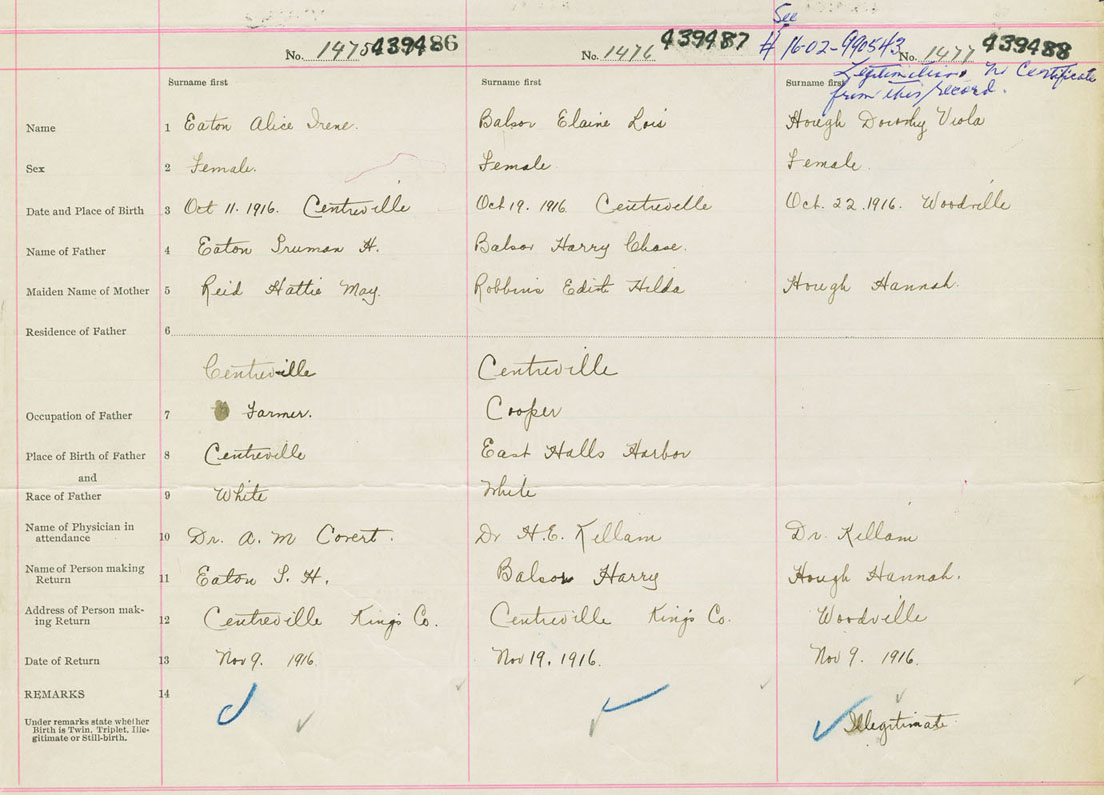 See
No. 1475 439486 No. 1476 439487 # 16-02-990543 No. 1477 439488
Legitimation. No Certificate
from this record.
Surname first Surname first Surname first
Name 1 Eaton Alice Irene. Balsor Elaine Lois Hough Dorothy Viola
Sex 2 Female. Female. Female.
Date and Place of Birth 3 Oct 11. 1916. Centreville Oct 19. 1916 Centreville Oct. 22. 1916. Woodville
Name of Father 4 Eaton Truman H. Balsor Harry Chase.
Maiden Name of Mother 5 Reid Hattie May. Robbins Edith Hilda Hough Hannah.
Residence of Father 6
Centreville Centreville
Occupation of Father 7 Farmer. Cooper
Place of Birth of Father 8 Centreville East Halls Harbor
and
Race of Father 9 White White
Name of Physician in
attendance 10 Dr. A. M Covert. Dr H. E. Killam Dr. Killam
Name of Person making
Return 11 Eaton T. H. Balsor Harry Hough Hannah.
Address of Person mak-
ing Return 12 Centreville Kings Co. Centreville Kings Co. Woodville
Date of Return 13 Nov 9. 1916. Nov 19. 1916. Nov 9. 1916.
REMARKS 14
Under remarks state whether
Birth is Twin, Triplet, Ille-
gitimate or Still-birth. Illegitimate.